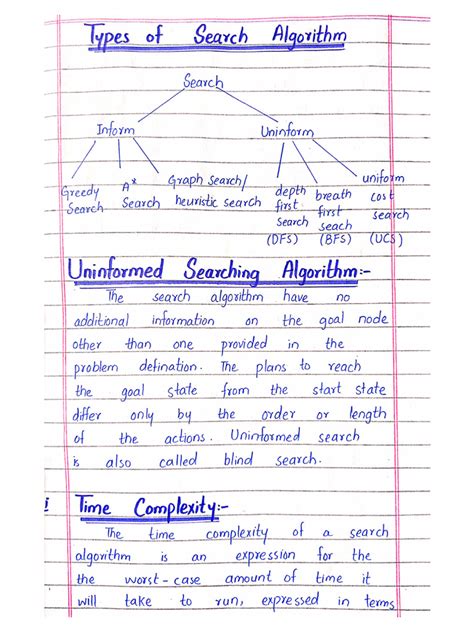 Types of Search Algorithm
Search
Inform Uninform
Greedy Search
A* Search
Graph Search/ heuristic search
depth first search (DFS)
breath first seach (BFS)
uniform cost search (UCS)
Uninformed Searching Algorithm:-
The search algorithm have no
additional information on the goal node
other than one provided in the
problem defination. The plans to reach
the goal state from the start state
differ only by the order or length
of the actions. Uninformed search
is also called blind search.
i Time Complexity:-
The time complexity of a search
algorithm is an expression for the
the worst-case amount of time it
will take to run, expressed in terms